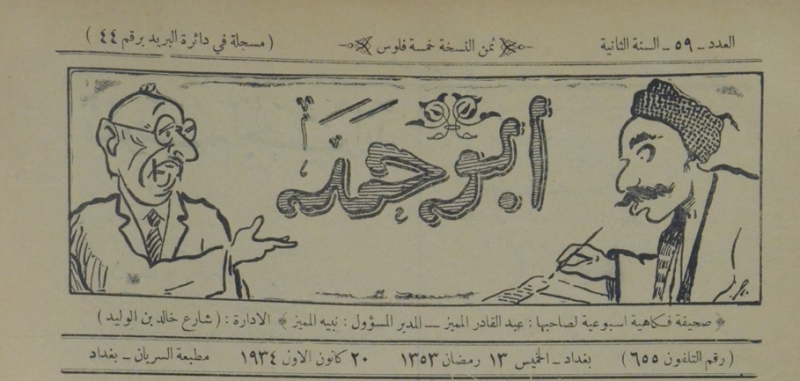 العدد ــ ٥٩ ــ السنة الثانية ثمن النسخة خمسة فلوس (مسجلة في دائرة البريد برقم ٤٤)
أبو حمد
صحيفة فكاهية اسبوعية لصاحبها: عبد القادر المميز ــ المدير المسؤول: نبيه المميز الادارة: (شارع خالد بن الوليد)
(رقم التلفون ٦٥٥) بغداد ــ الخميس ١٣ رمضان ١٣٥٣ ٢٠ كانون الاول ١٩٣٤ مطبعة السريان ــ بغداد